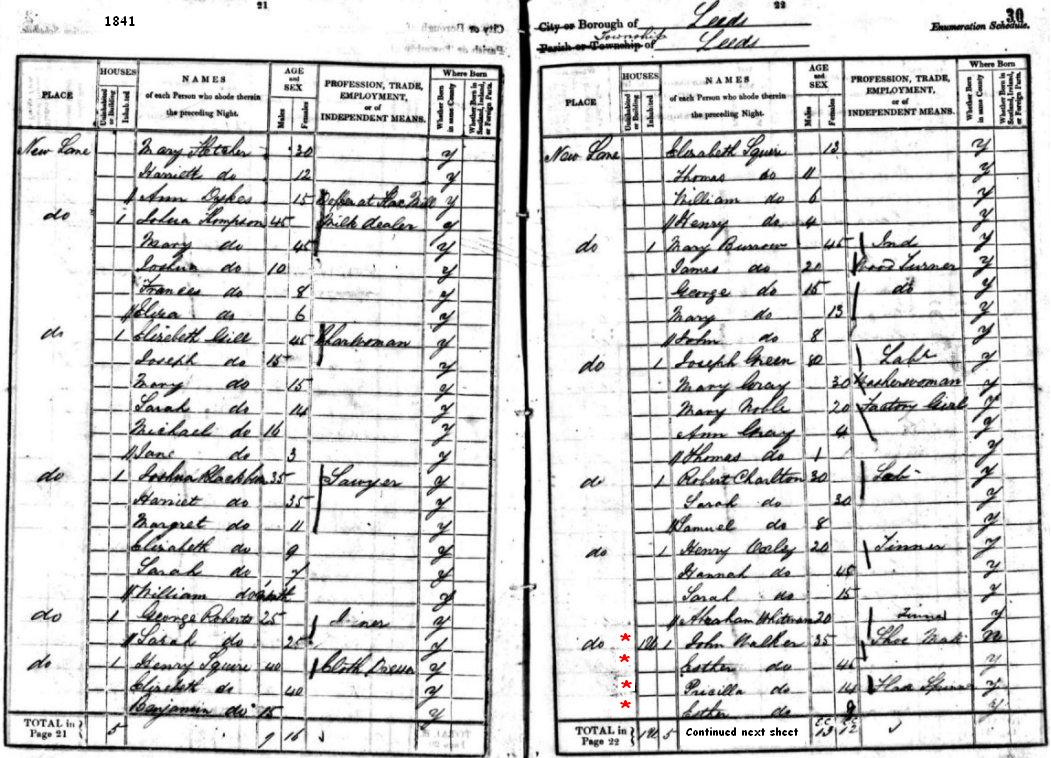 1841
21
City or Borough of
PLACE
HOUSES
Uninhabited or Building
Inhabited
NAMES
of each Person who abode therein
the preceding Night.
AGE and SEX
Males
Females
PROFESSION, TRADE, EMPLOYMENT, or of INDEPENDENT MEANS.
Where Born
Whether Born in same County
Whether Born in Scotland, Ireland, or Foreign Parts.
New Lane Mary 30 y
Harriett do 12 y
Ann Dykes 15 y
do 1 Joshua Thompson 45 Milk dealer y
Mary do 45 y
Joshua do 10 y
Frances do 8 y
do 6 y
do 1 Elizabeth Gill 45 Charwoman y
Joseph do 15 y
Mary do 15 y
Sarah do 14 y
Michael do 16 y
Jane do 3 y
do 1 Joshua 35 Sawyer y
Harriet do 35 y
Margret do 11 y
Elizabeth do 9 y
Sarah do 7 y
William do y
do 1 George Roberts 25 y
Sarah do 25 y
do 1 Henry Squire 40 Cloth y
Elizabeth do 40 y
Benjamin do 15 y
TOTAL in Page 21 5 9 16
22
30
City or Borough of Leeds
Enumeration Schedule.
Parish or Township of Township Leeds
PLACE
HOUSES
Uninhabited or Building
Inhabited
NAMES
of each Person who abode therein
the preceding Night.
AGE and SEX
Males
Females
PROFESSION, TRADE, EMPLOYMENT, or of INDEPENDENT MEANS.
Where Born
Whether Born in same County
Whether Born in Scotland, Ireland, or Foreign Parts.
New Lane Elizabeth Squire 13 y
Thomas do 11 y
William do 6 y
Henry do 4 y
do 1 Mary Burrow 45 Ind y
James do 20 Wood Turner y
George do 15 do y
Mary do 13 y
John do 8 y
do 1 Joseph Green Labr y
Mary Gray 30 Washerwoman y
Mary Noble 20 Factory Girl y
Ann Gray 4 y
Thomas do 1 y
do 1 Robert Charlton 30 Lab y
Sarah do 30 y
Samuel do 8 y
do 1 Henry 20 Tinner y
Hannah do 45 y
Sarah do 15 y
Abraham 20 Tinner y
do * 1 John Walker 35 Shoe n
* Esther do y
* Priscilla do 14 Flax y
* Esther do y
TOTAL in Page 22 5 Continued next sheet 13 12